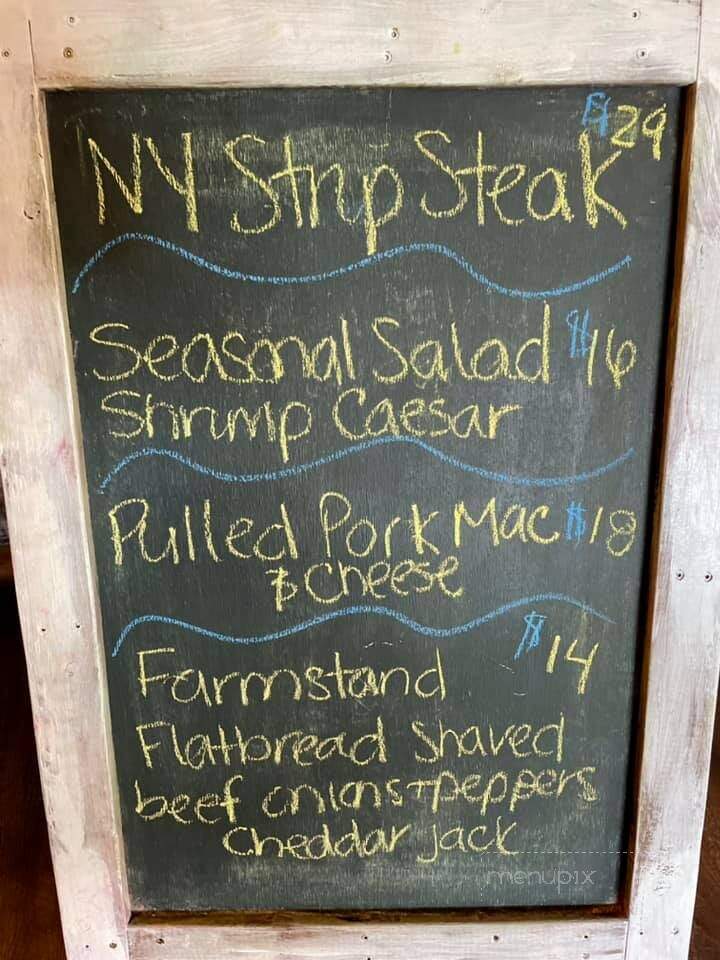 $29
NY Strip Steak
Seasonal Salad $16
Shrimp Caesar
Pulled Pork Mac $18
& cheese
Farmstand $14
Flatbread Shaved
beef onions + peppers
cheddar jack
menupix